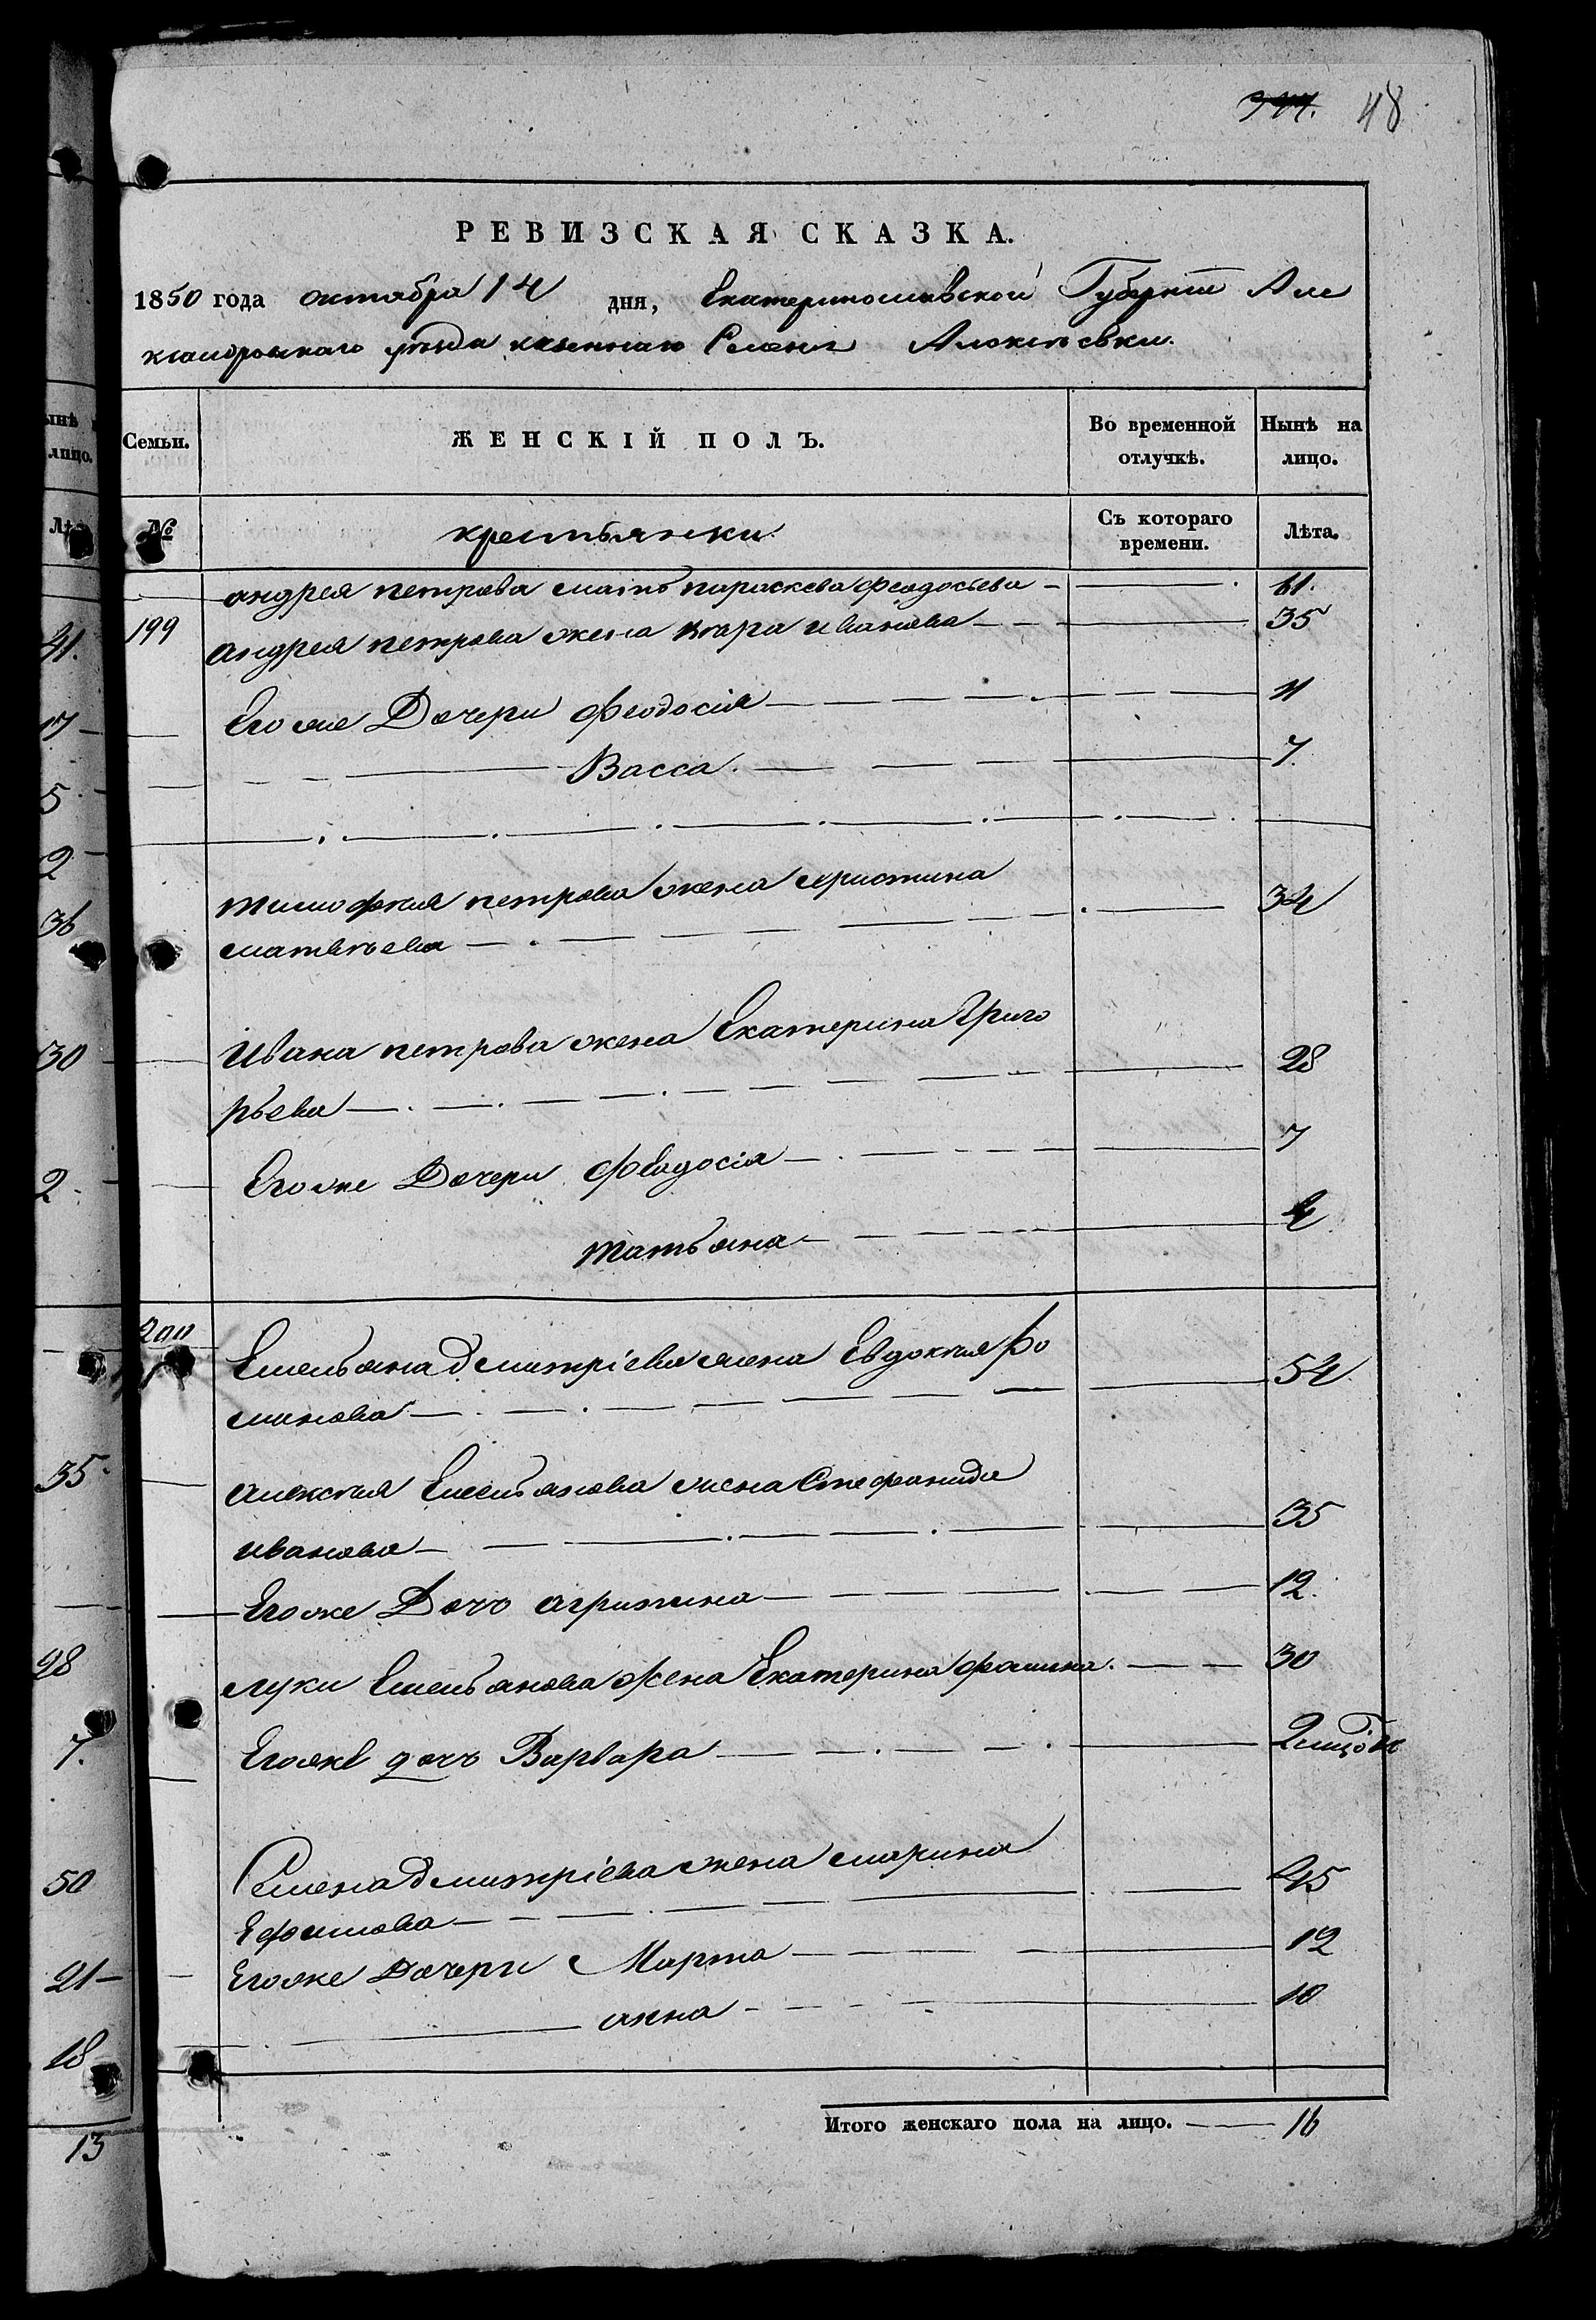 48
РЕВИЗСКАЯ СКАЗКА.
1850 года октября 14 дня, Екатеринославской Губернiи Але
ксандровскаго уѣзда казеннаго Селенiя Алексѣевки.
Семьи.
ЖЕНСКIЙ ПОЛЪ.
Во временной отлучкѣ.
Нынѣ на лицо.
№
крестьянки
Съ котораго времени.
Лѣта.
андрея петрова мать параскева феодосьева 61.
199 андрея петрова жена иванова 35
Его же Дочери феодосiя 11
Васса. 7.
тимофея петрова жена христина 34
матвѣева
Ивана петрова жена Екатерина Григо
рьева 28
Его же Дочери феодосiя 7
татьяна
200 Емельяна дмитрiева жена Евдокия Фо
минова 54
алексѣя Емельянова жена Стефанида
иванова 35
Его же Дочь агрипина 12.
луки Емельянова жена Екатерина фомина. 30
Его же дочь Варвара
Семена дмитрiева жена марина 45
Ефимова
Его же Дочери Марта 12
анна 10
Итого женскаго пола на лицо. 16
ынѣ
лицо.
Лѣ
41.
17
5
2
36
30
2
35
28
7.
50
21
18
13